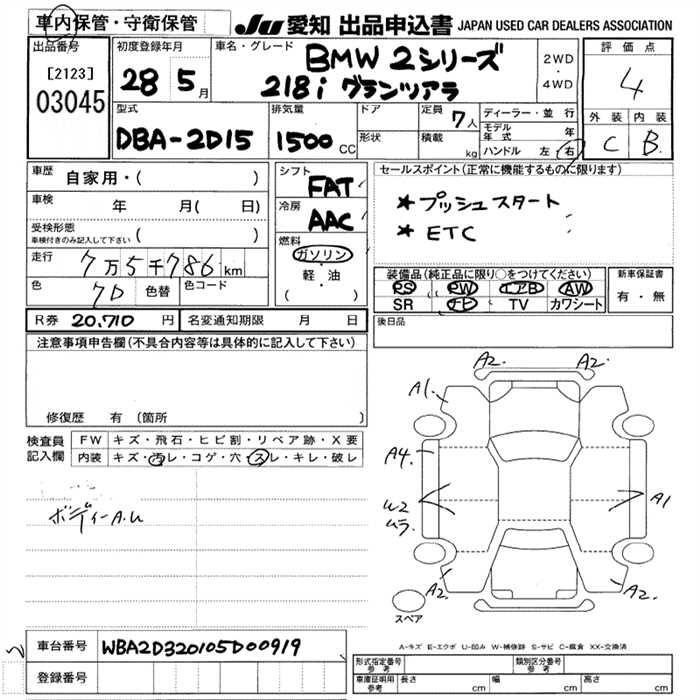 車内保管・守衛保管
JU 愛知 出品申込書 JAPAN USED CAR DEALERS ASSOCIATION
出品番号
[2123]
03045
初度登録年月
28 5月
車名・グレード
BMW 2シリーズ
218i グランツアラ
2WD
・
4WD
評価点
4
外装 内装
C B
型式
DBA-2D15
排気量
1500 CC
ドア
形状
定員 7人
積載 kg
ディーラー・並行
モデル年式 年
ハンドル 左・右
車歴 自家用・( )
車検 年 月(日)
受検形態
車検付きのみ記入して下さい ( )
走行 7万5千786km
色 7D 色替 色コード
シフト
FAT
冷房
AAC
燃料
ガソリン
・
軽・油
( )
セールスポイント(正常に機能するものに限ります)
★ プッシュスタート
★ ETC
装備品(純正品に限り○をつけてください)
PS PW エアB AW
SR ナビ TV カワシート
新車保証書
有・無
R券 20,710 円 名変通知期限 月 日
後日品
注意事項申告欄(不具合内容等は具体的に記入して下さい)
修復歴 有 (箇所 )
検査員記入欄
FW キズ・飛石・ヒビ割・リペア跡・X要
内装 キズ・汚レ・コゲ・穴・スレ・キレ・破レ
ボディーA.U
A2. A2.
A1.
A4.
U2
ムラ
A1
A2. A2.
スペア
A-キズ E-エクボ U-凹み W-補修跡 S-サビ C-腐食 XX-交換済
車台番号 WBA2D320105D00919
登録番号
形式指定番号 参考
類別区分番号 参考
車庫証明用 参考 長さ cm 幅 cm 高さ cm